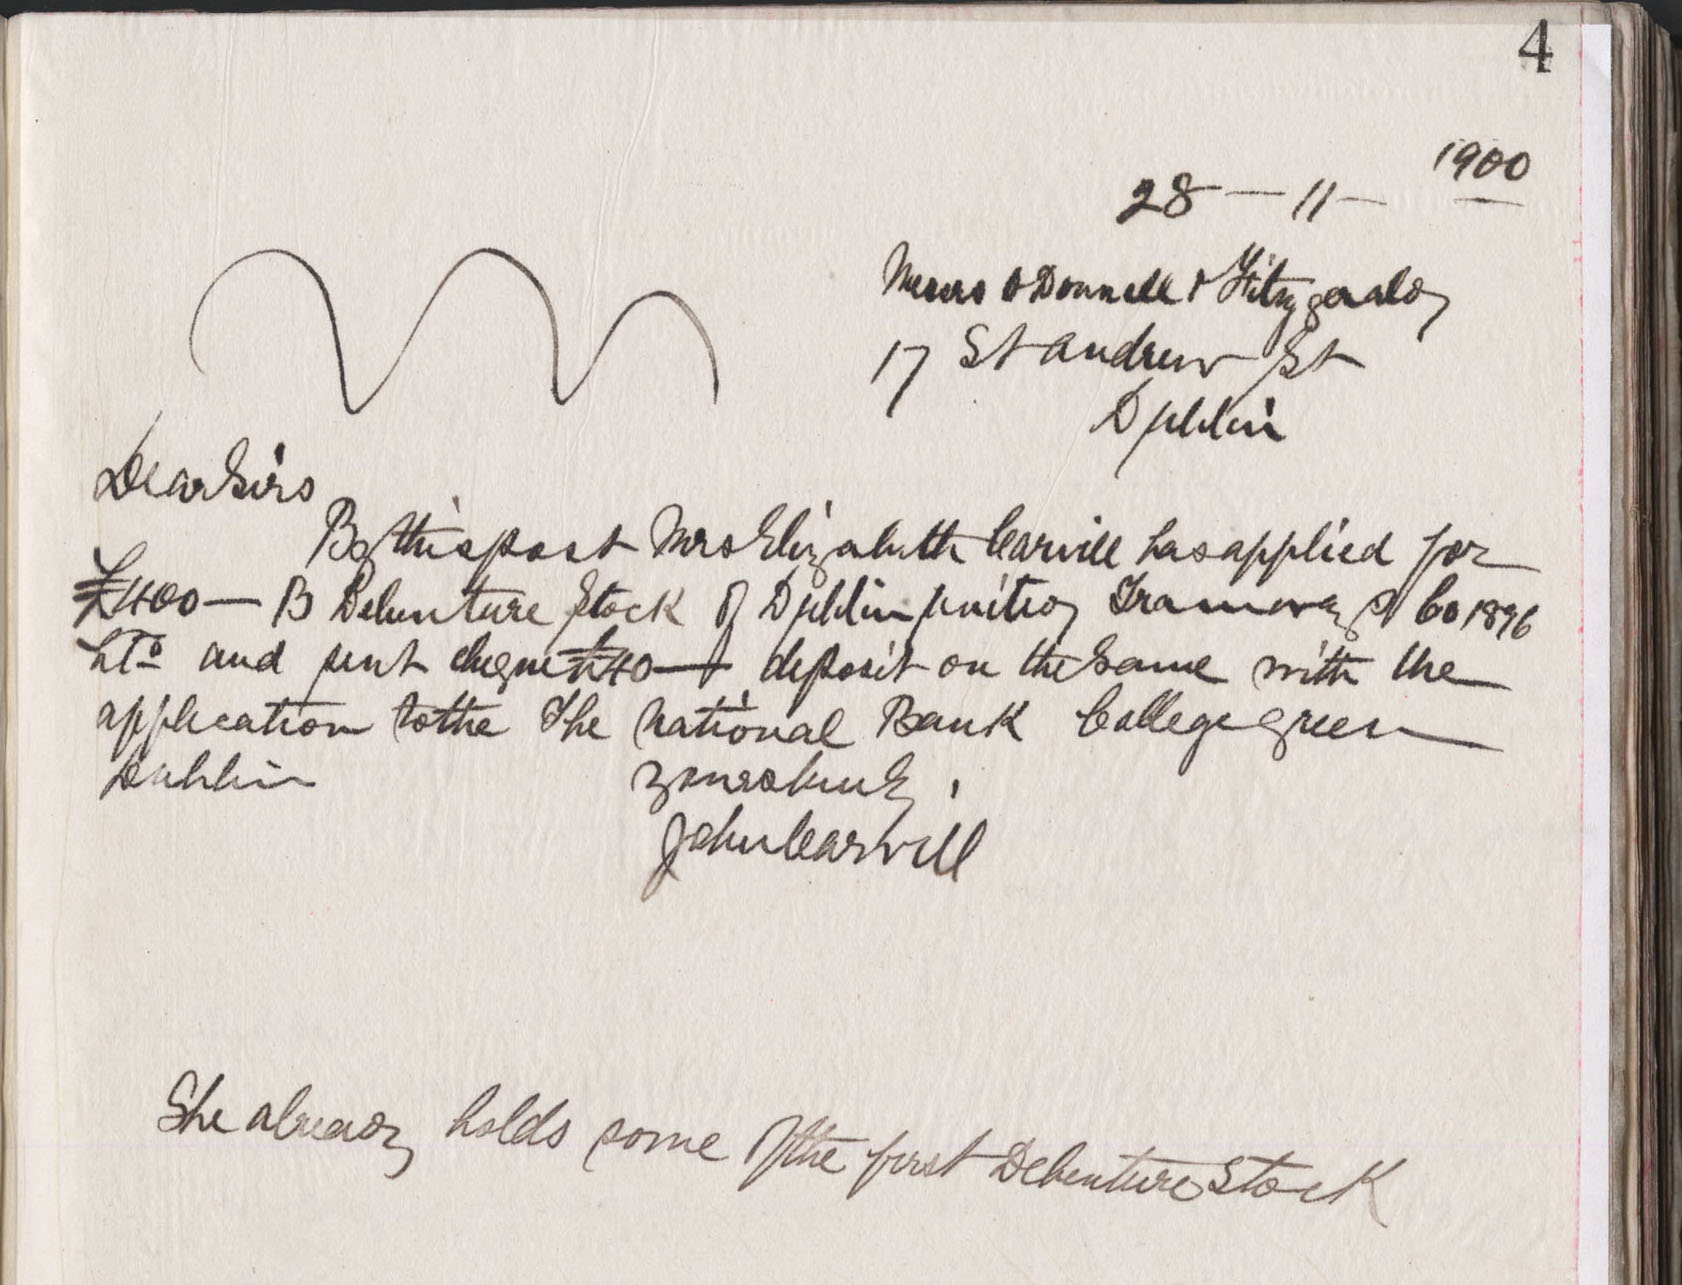 4
28 — 11 — 1900
Messrs O Donnell & Fitzgerald,
17 St Andrew St
Dublin
Dear Sirs
By this post Mrs Elizabeth Carvill has applied for
£400 — B Debenture Stock of Dublin United Tramways Co 1896
LTD and sent cheque £40 — deposit on the same with the
application to the The National Bank College Green
Dublin
Yours truly,
John Carvill
She already holds some of the first Debenture Stock